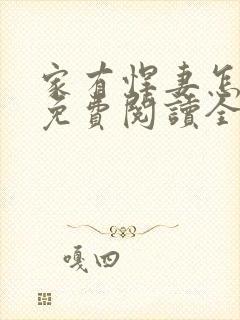 家有悍妻怎
免費閱讀全
嘎四